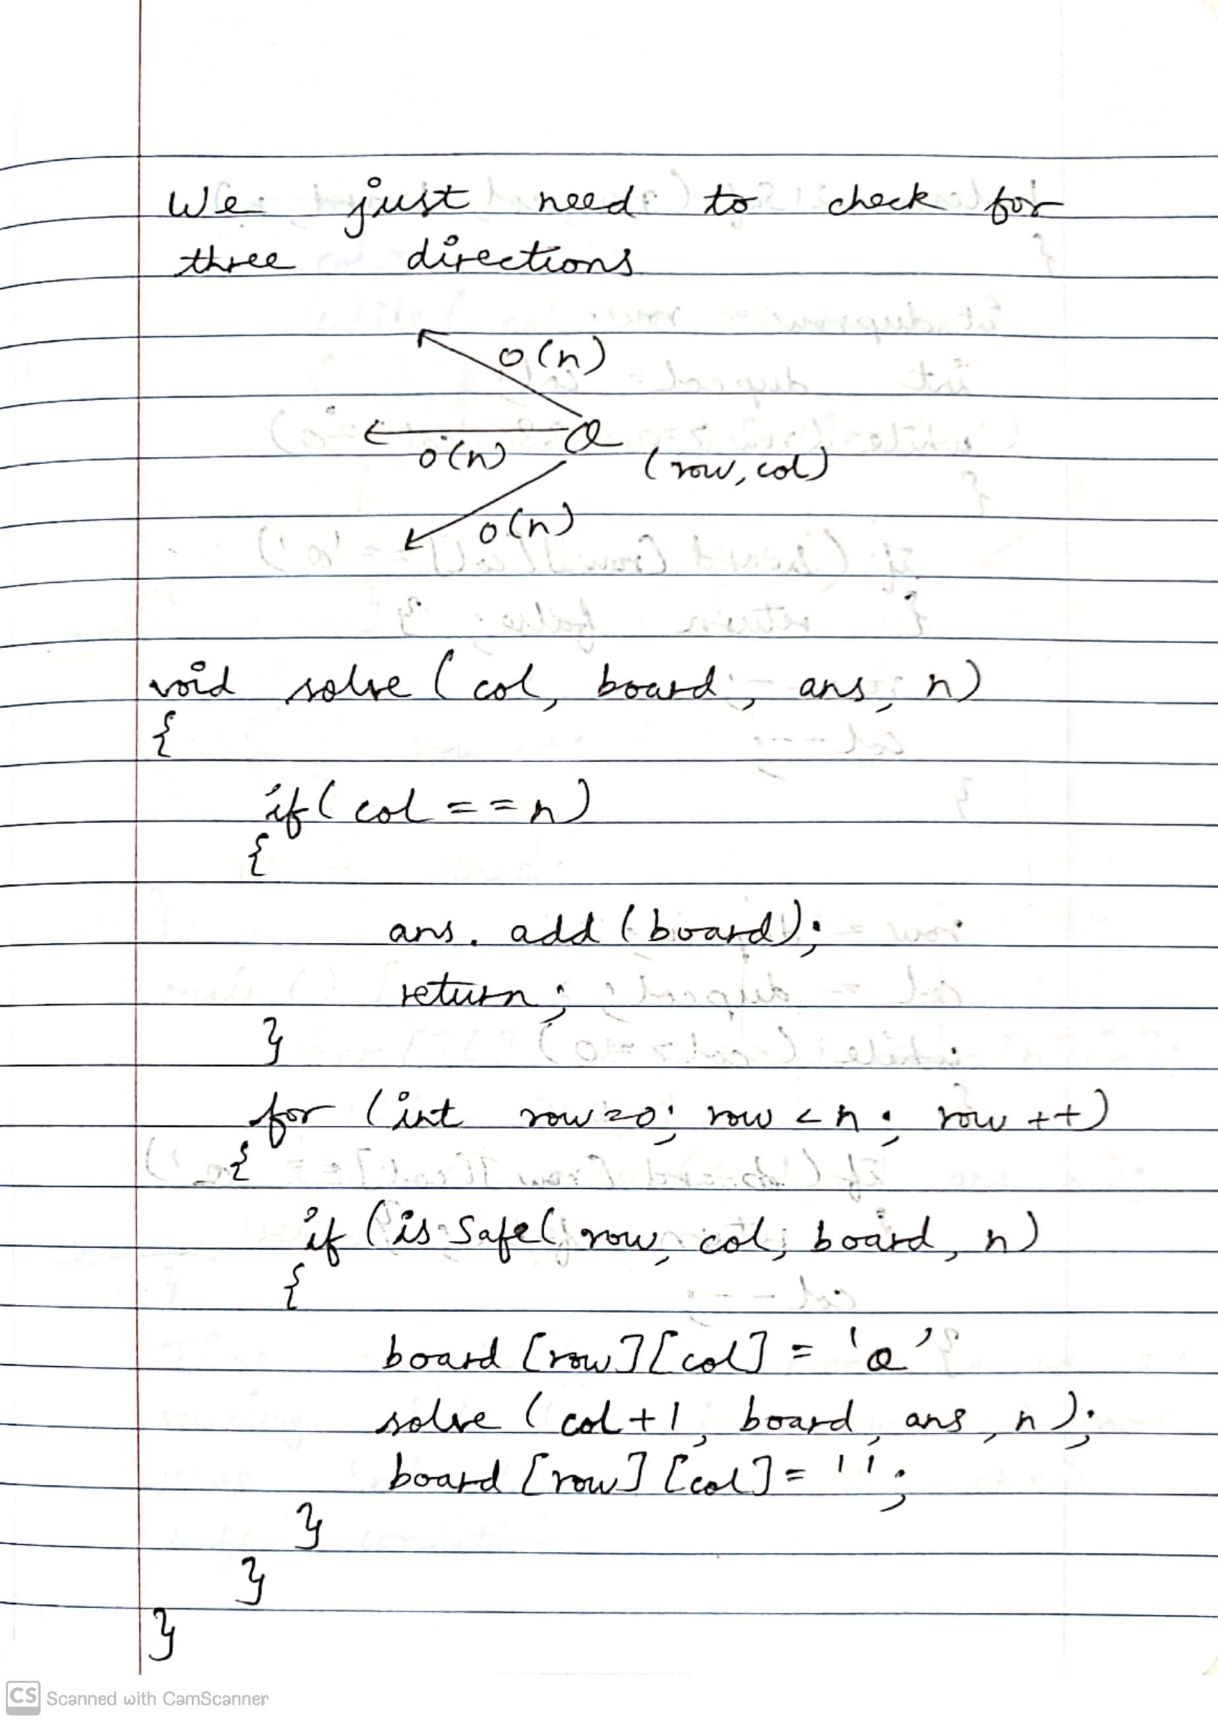 We just need to check for
three directions
O(n)
O(n)
Q
(row, col)
O(n)
void solve ( col, board, ans, n)
{
if ( col == n)
{
ans. add ( board);
return;
}
for (int row=0; row < n; row ++)
{
if ( is Safe( row, col, board, n)
{
board [row][col] = 'Q'
solve ( col+1, board, ans, n);
board [row] [col] = ' ';
}
}
}
CS Scanned with CamScanner